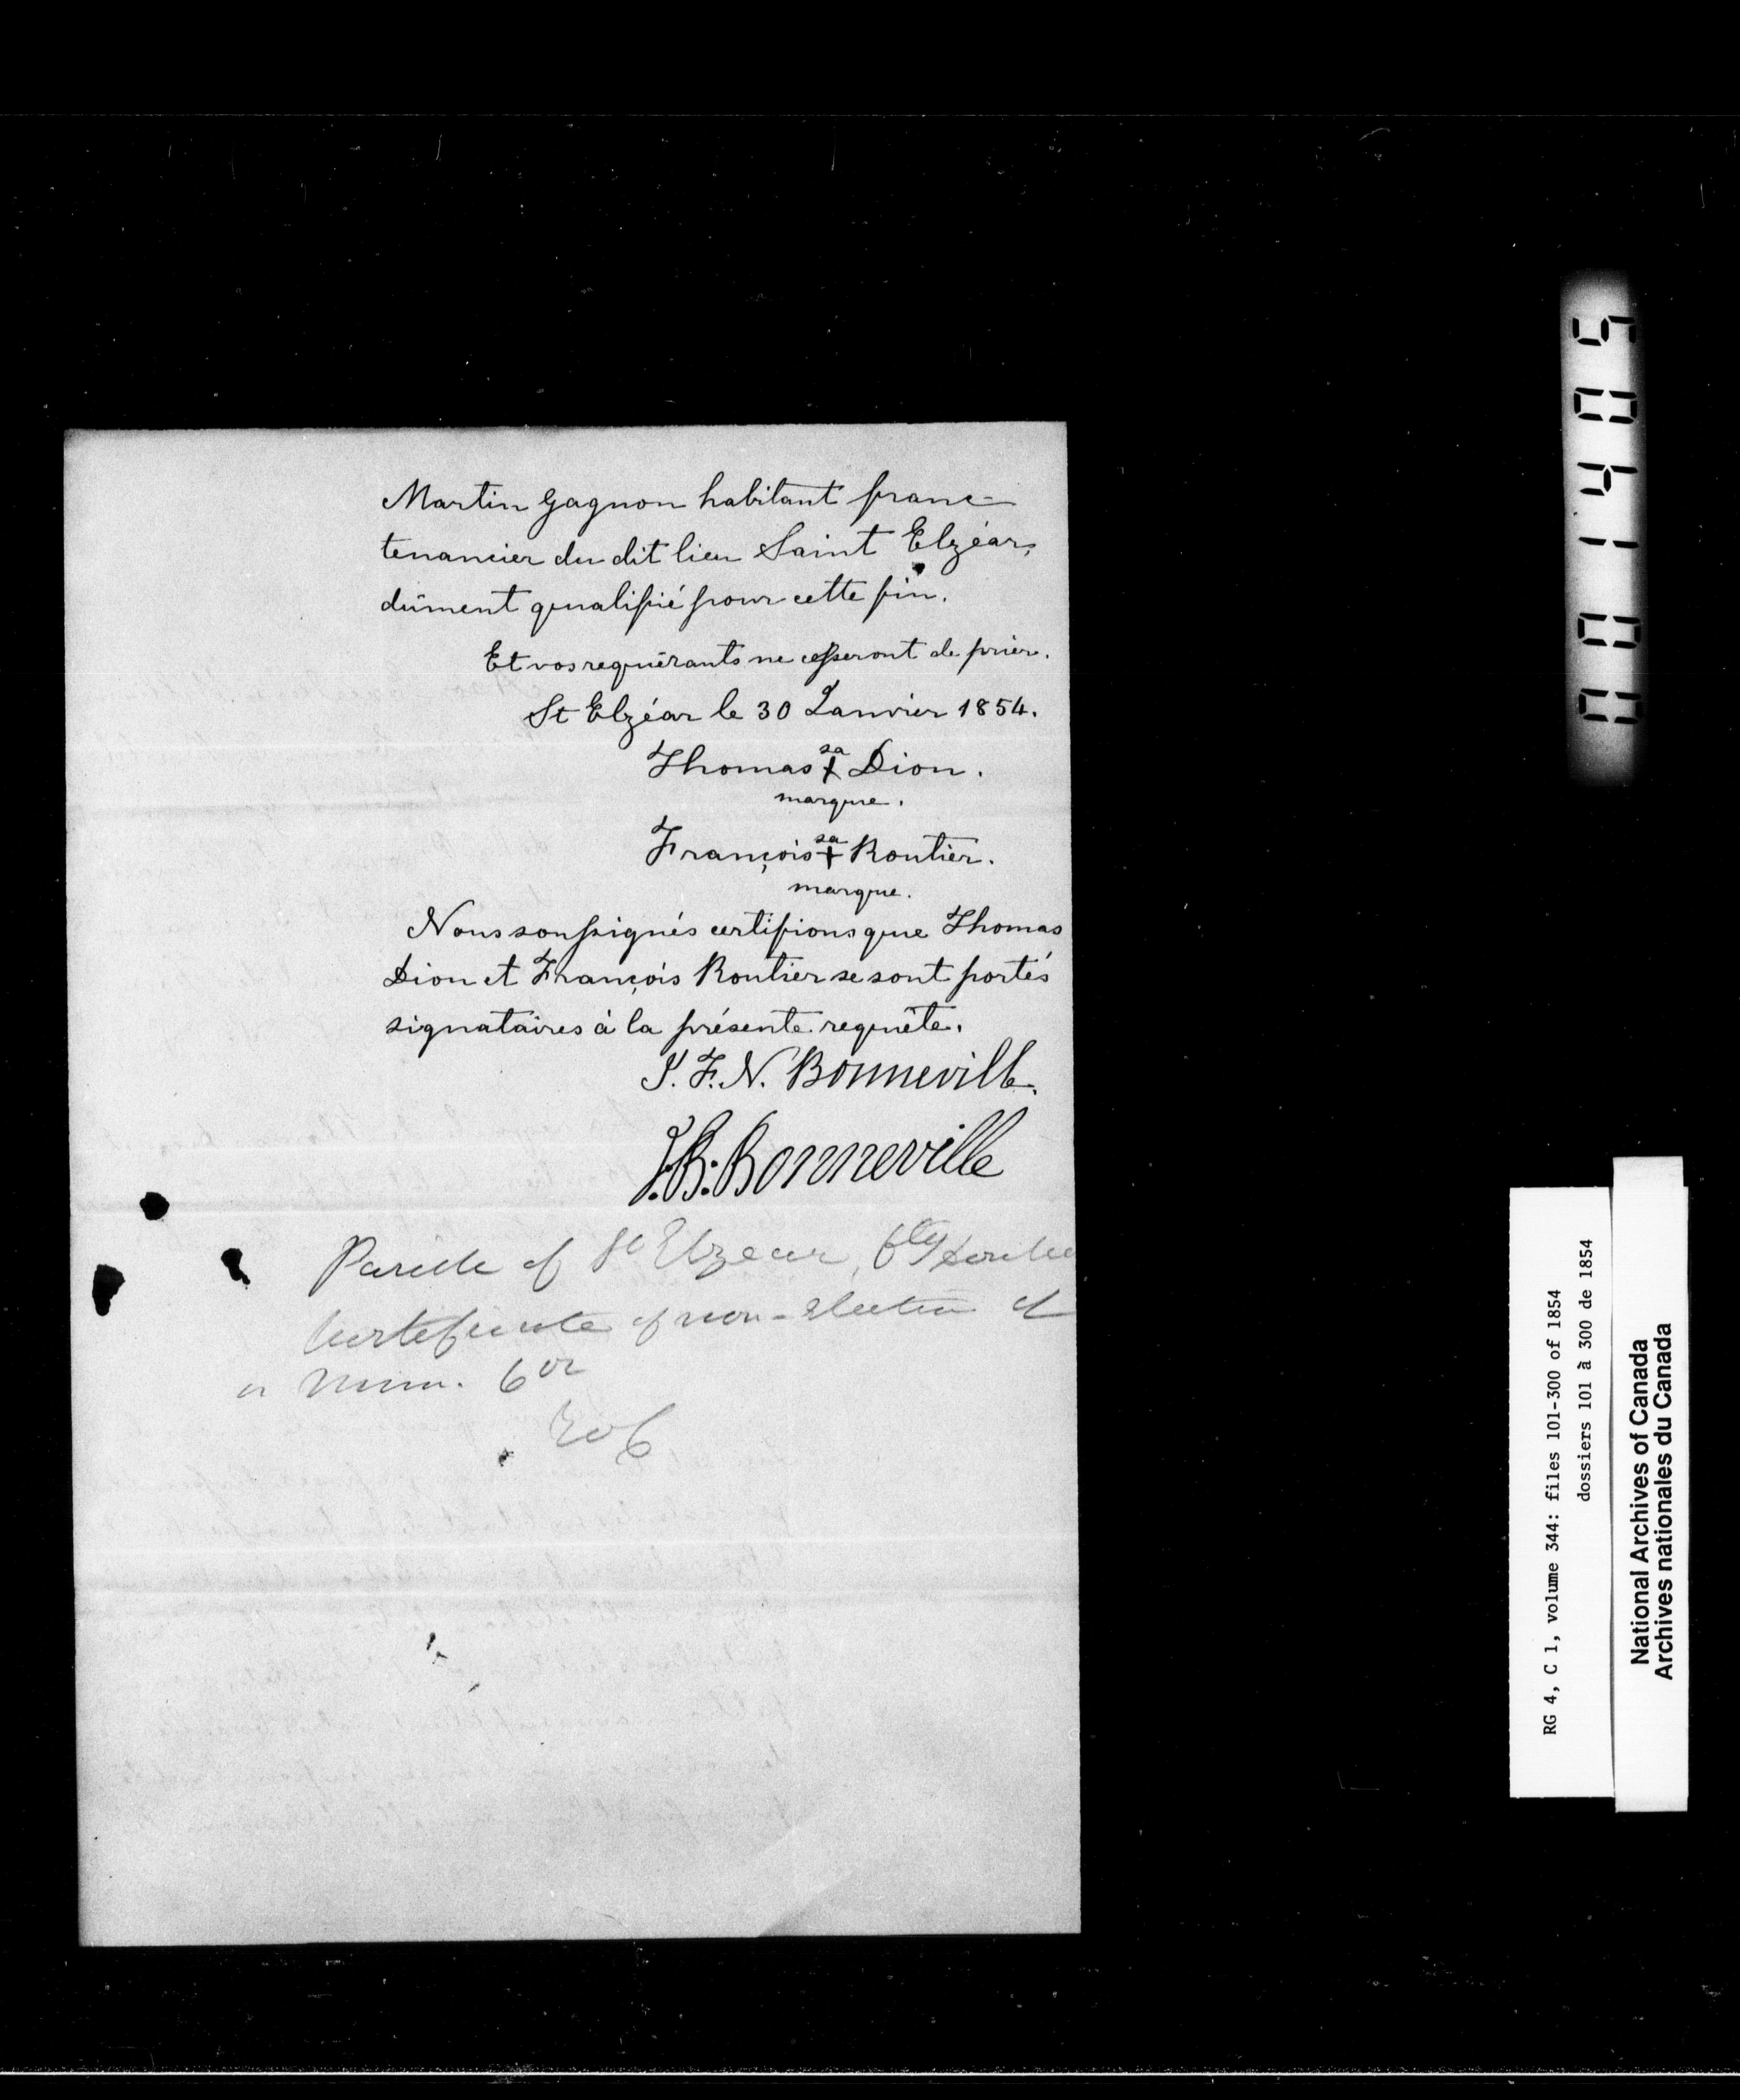 Martin Gagnon habitant franc-
tenancier du dit lieu Saint Elzéar,
dûment qualifié pour cette fin.
Et vos requérants ne cesseront de prier.
St Elzéar le 30 Janvier 1854.
Thomas sa + Dion.
marque.
François sa + Routier.
marque.
Nous soussignés certifions que Thomas
Dion et François Routier se sont portés
signataires à la présente requête.
J. F. N. Bonneville.
J. B. Bonneville
Parish of St Elzear, Cty
Certificate of non-election of
a Mun. Cor
5041400
RG 4, C 1, volume 344: files 101-300 of 1854
dossiers 101 à 300 de 1854
National Archives of Canada
Archives nationales du Canada